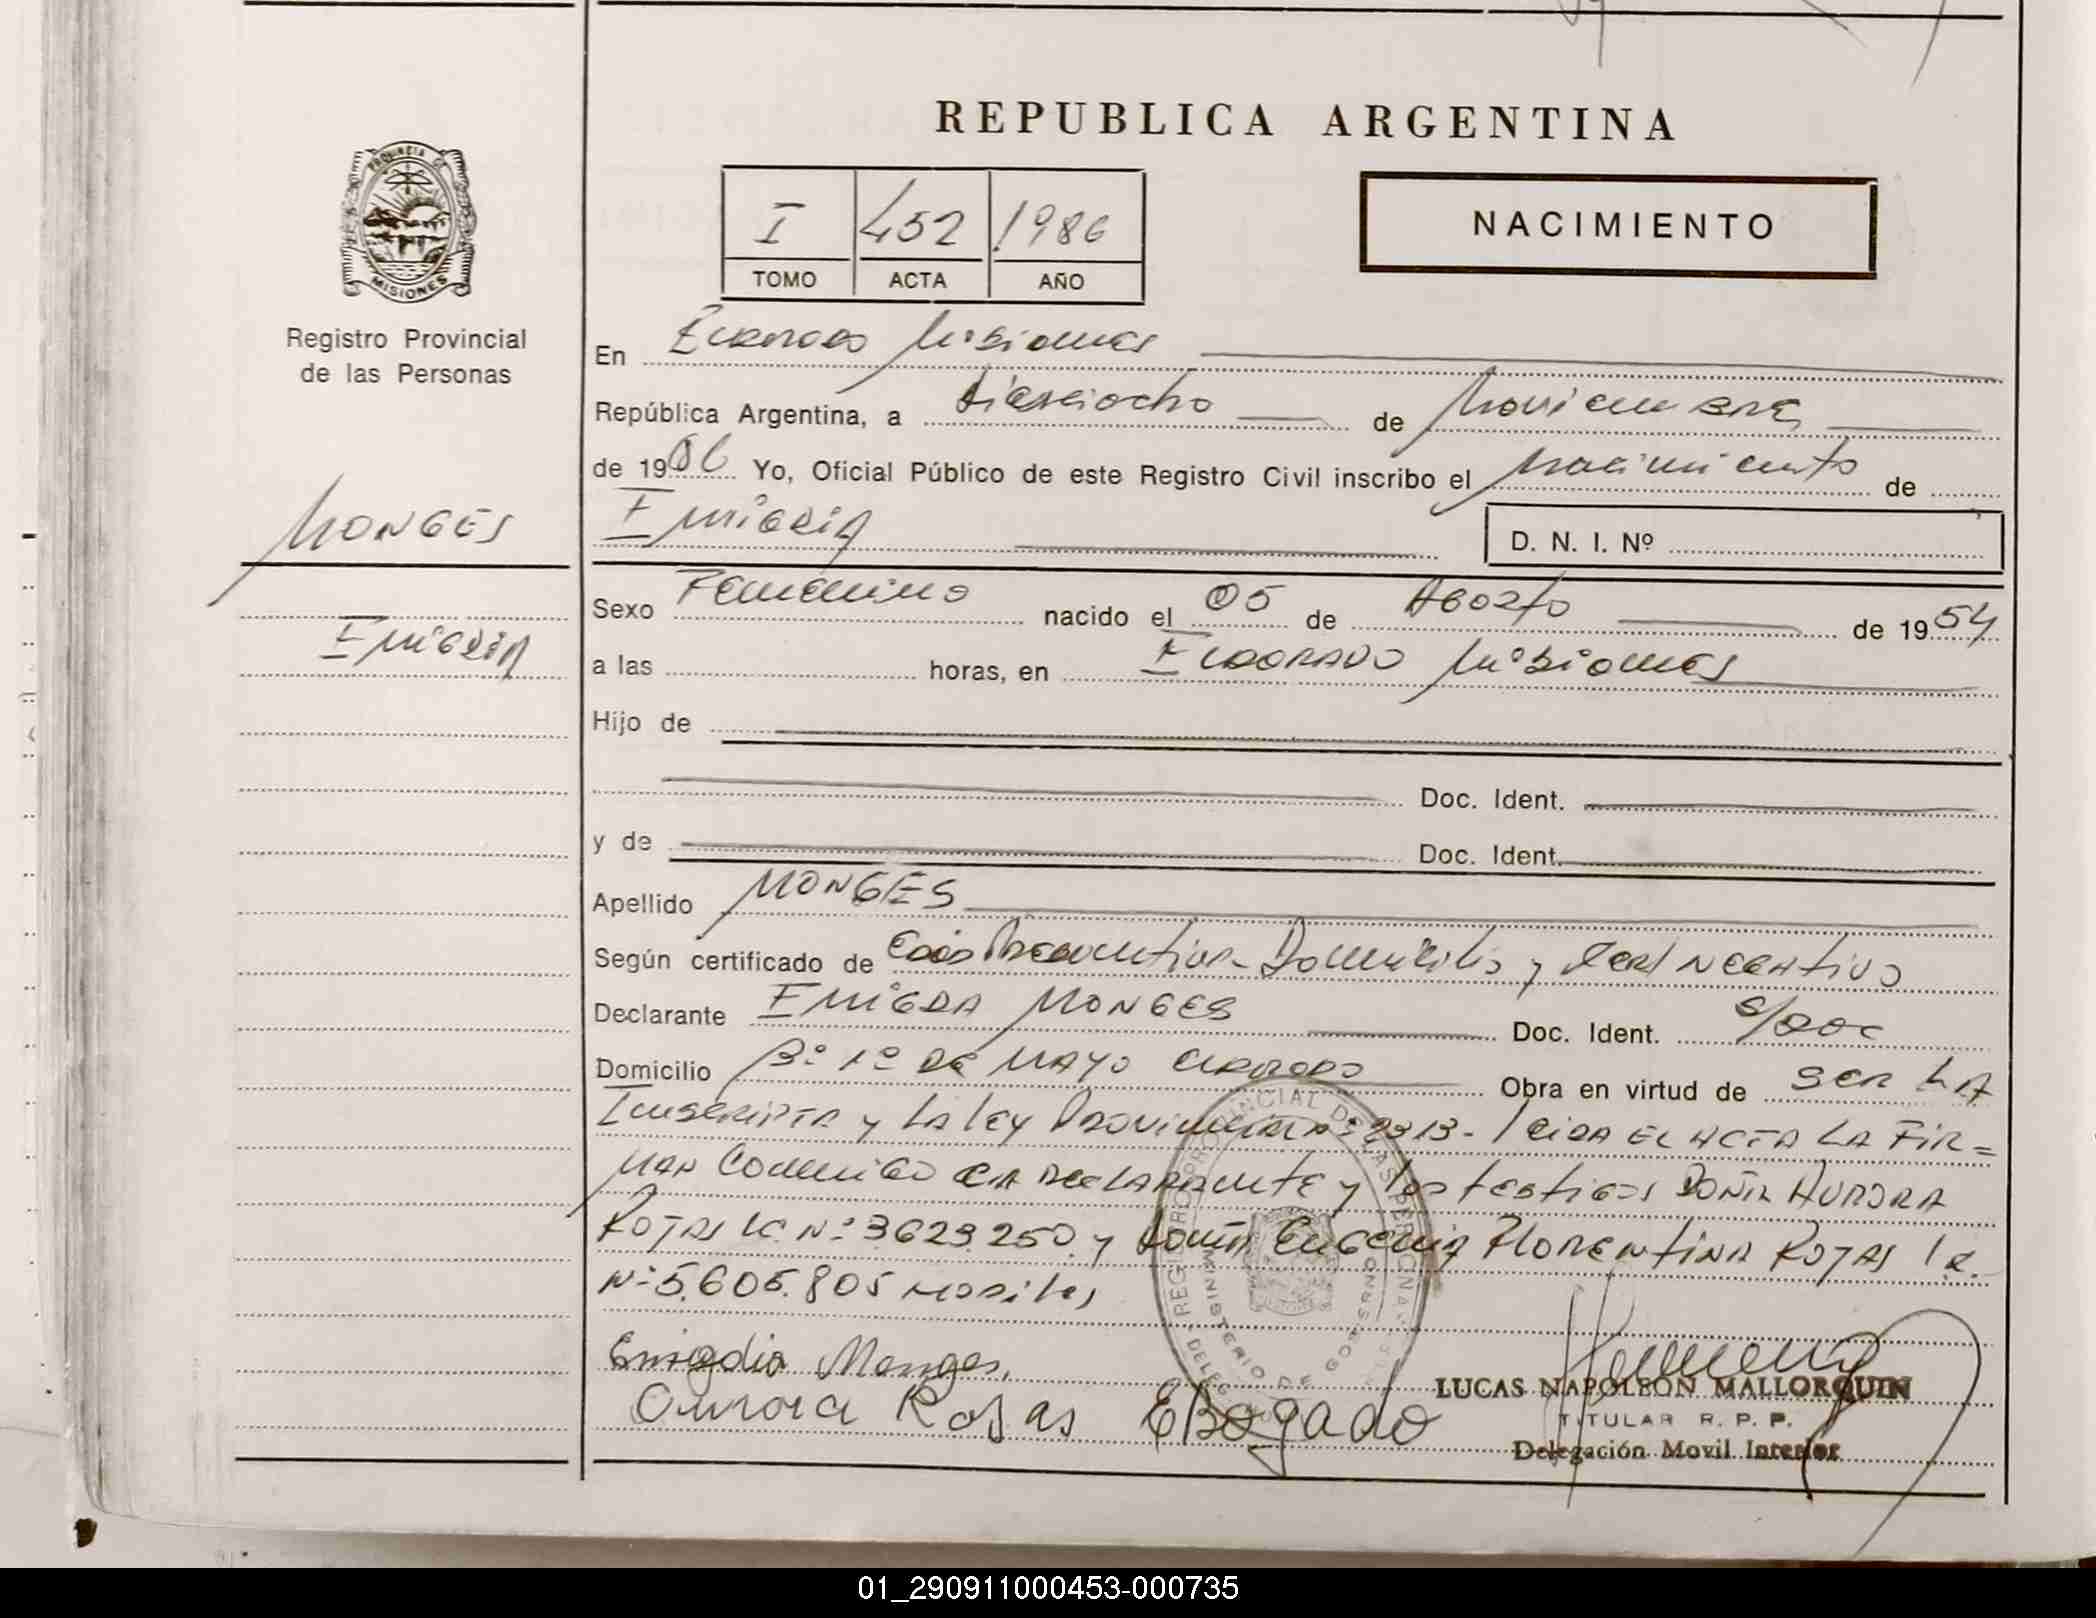 REPUBLICA ARGENTINA
PROVINCIA DE
MISIONES
I 452 1986
TOMO ACTA AÑO
NACIMIENTO
Registro Provincial
de las Personas
En Eldorado Misiones
República Argentina, a dieciocho de Noviembre
de 1986 Yo, Oficial Público de este Registro Civil inscribo el nacimiento de
MONGES
Emigdia
D. N. I. Nº
Sexo Femenino nacido el 05 de Agosto de 1954
Emigdia
a las horas, en ELDORADO Misiones
Hijo de
Doc. Ident.
y de Doc. Ident.
Apellido MONGES
Según certificado de Domicilio y NEGATIVO
Declarante EMIGDIA MONGES Doc. Ident. S/DOC
Domicilio Bº 1º DE MAYO ELDORADO Obra en virtud de SER LA
Inscripta y LA LEY Provincial Nº 2313- EL ACTA LA FIR=
MAN Conmigo LA DECLARANTE y los testigos DOÑA AURORA
ROJAS LC. Nº 3623.250 y DOÑA EUGENIA FLORENTINA ROJAS
Nº 5.605.805
REGISTRO PROVINCIAL DE LAS PERSONAS
MINISTERIO DE GOBIERNO
Emigdia Monges.
Aurora Rojas EBogado
LUCAS NAPOLEON MALLORQUIN
TITULAR R. P. P.
Delegación Movil Interior
01_290911000453-000735